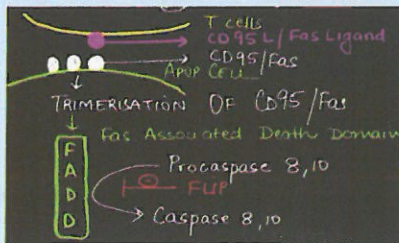 T cells
CD95L/Fas Ligand
CD95/Fas
APOP CELL
TRIMERISATION OF CD95/Fas
Fas Associated Death Domain
FADD
Procaspase 8,10
FLIP
Caspase 8,10